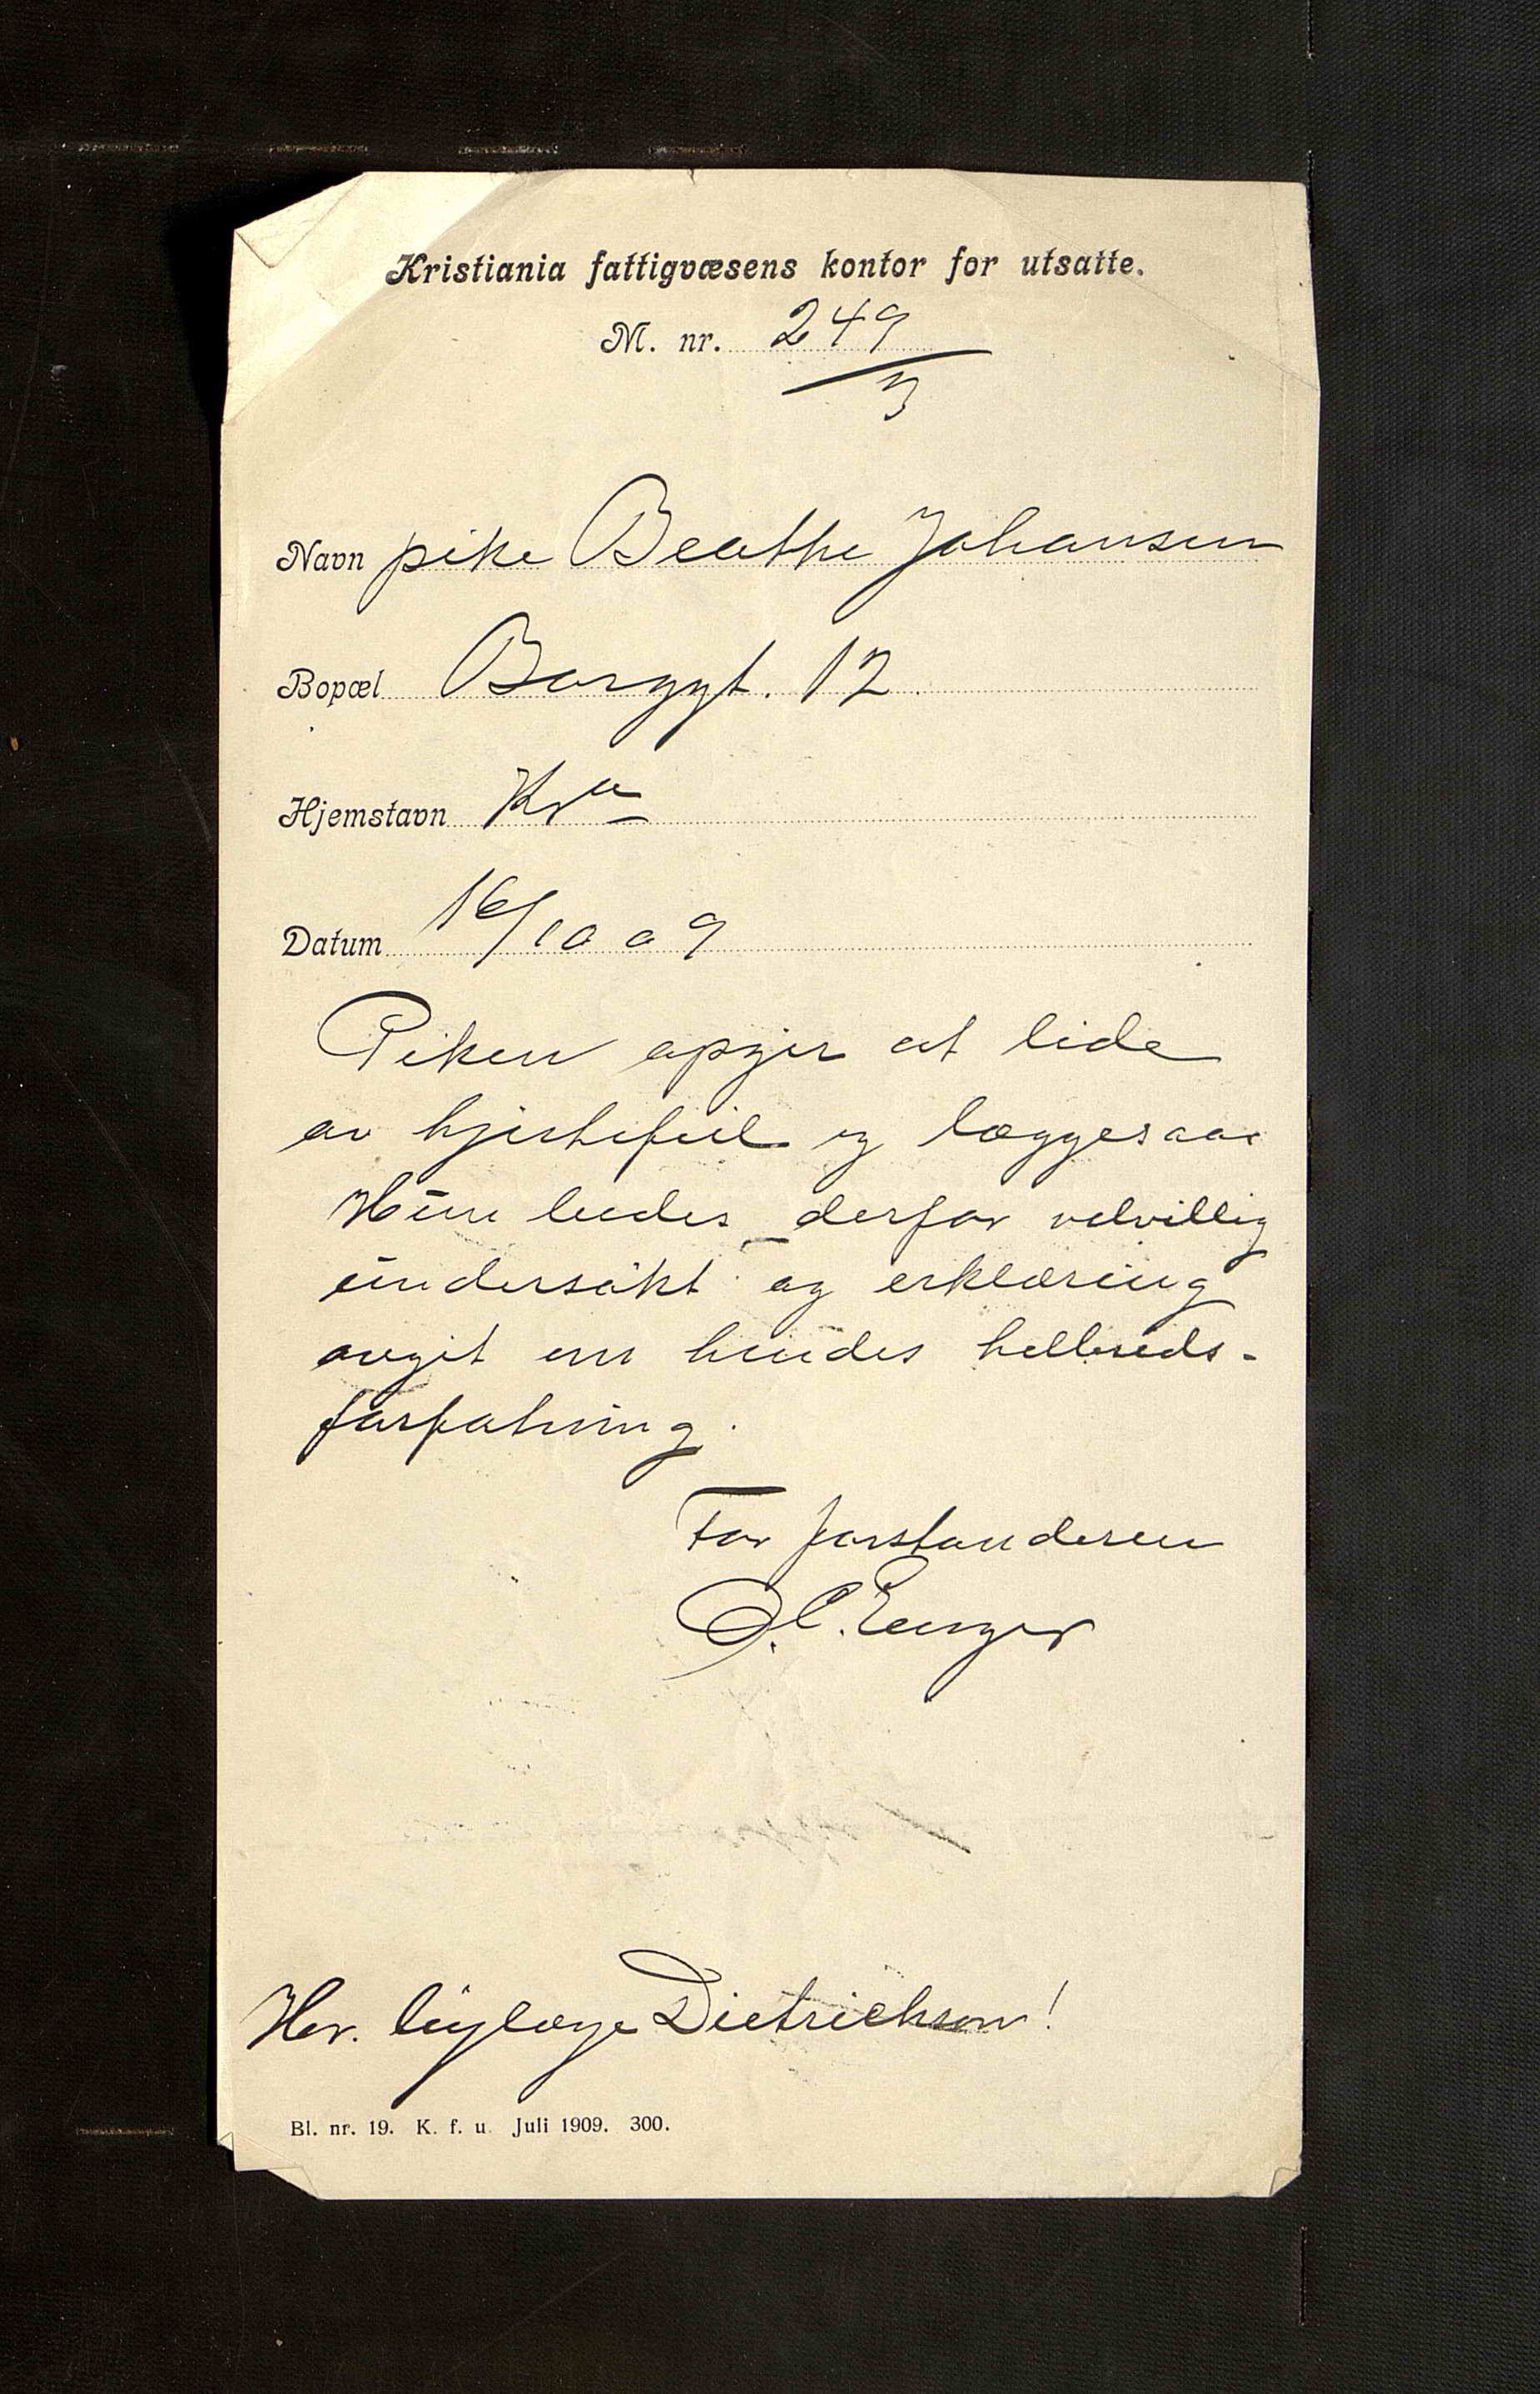 Kristiania fattigvæsens kontor for utsatte.
M. nr. 249
3
Navn pike Beathe Johansen
Bopæl Borggt. 12
Hjemstavn Kra
Datum 16/10 09
Piken opgir at lide
av hjertefeil og læggesaar
Hun bedes derfor velvillig
undersøkt og erklæring
avgit om hendes helbreds-
forfatning.
For forstanderen
C. Enger
Hr. liglæge Dietrichson!
Bl. nr. 19. K. f. u. Juli 1909. 300.